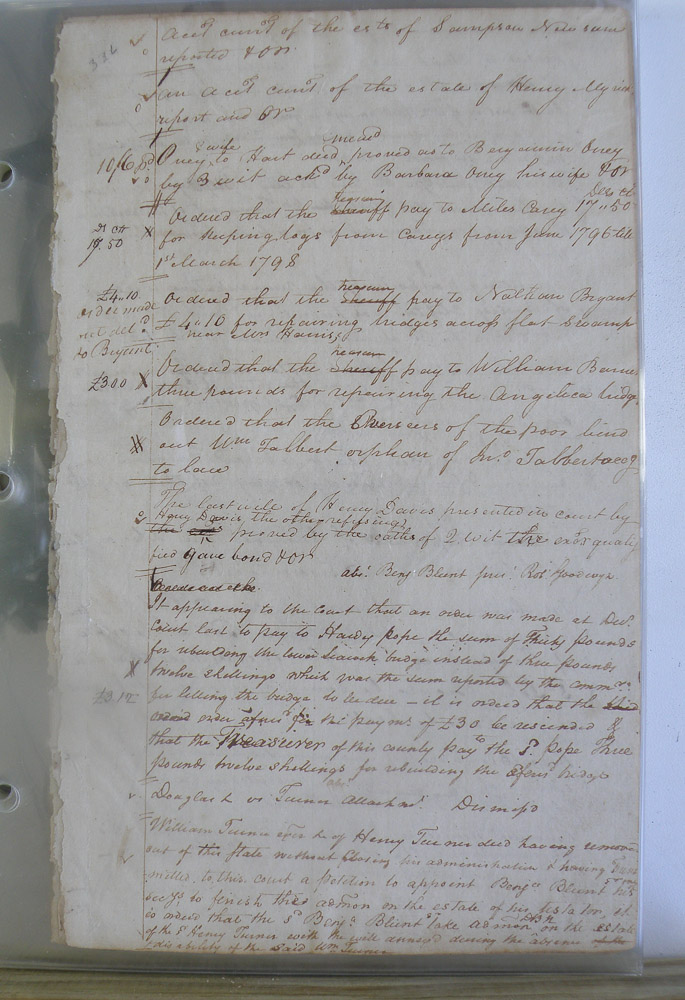 336
Acct curt of the est of Sampson Newsum
reported & Or
an Acct curt of the estate of Henry Myrick
report and Or
& wife
10/6 pd Oney to Hart deed proved as to Benjamin Oney
by 3 wit ackd by Barbara Oney his wife & Or
treasurer
Ds Cts
Ordered that the sheriff pay to Miles Carey 17"50
Ds Cts
17.50
for keeping logs from Careys from June 1796 till
1st March 1798
£4"10
order made
out deld
to Bryant
treasurer
Ordered that the sheriff pay to Nathan Bryant
£4"10 for repairing bridges across flat Swamp
near Mrs
treasurer
£3.00
Ordered that the sheriff pay to William Barnes
three pounds for repairing the Angelica bridge
Ordered that the Overseers of the poor bind
out Wm Tabbert orphan of Jno Tabbert accg
to law
The last will of Henry Davis presented in court by
Henry Davis, the other refusing,
the proved by the oaths of 2 wit the exox quali
fied gave bond & Or
abst. Benj Blunt prest. Robt Goodwyn
It appearing to the court that an order was made at Decr
court last to pay to Hardy pope the sum of Thirty pounds
for rebuilding the lower Seacock bridge instead of three pounds
twelve shillings which was the sum reported by the commrs
£3.12
for letting the bridge to be due – it is ordered that the said
order afsd for the paymt of £30 be rescinded &
that the Treasurer of this county pay to the sd pope Three
pounds twelve shillings for rebuilding the afsd bridge
Douglas vs Turner attachmt. Dismisd
William Turner exor of Henry Turner decd having removd
out of this state without closing his administration & having
mitted to this court a petition to appoint Benja Blunt his
secty. to finish the admon on the estate of his testator, it
is ordered that the sd Benja Blunt take admon on the estate
of the sd Henry Turner with the will annexd during the absence
& disability of the said Wm Turner